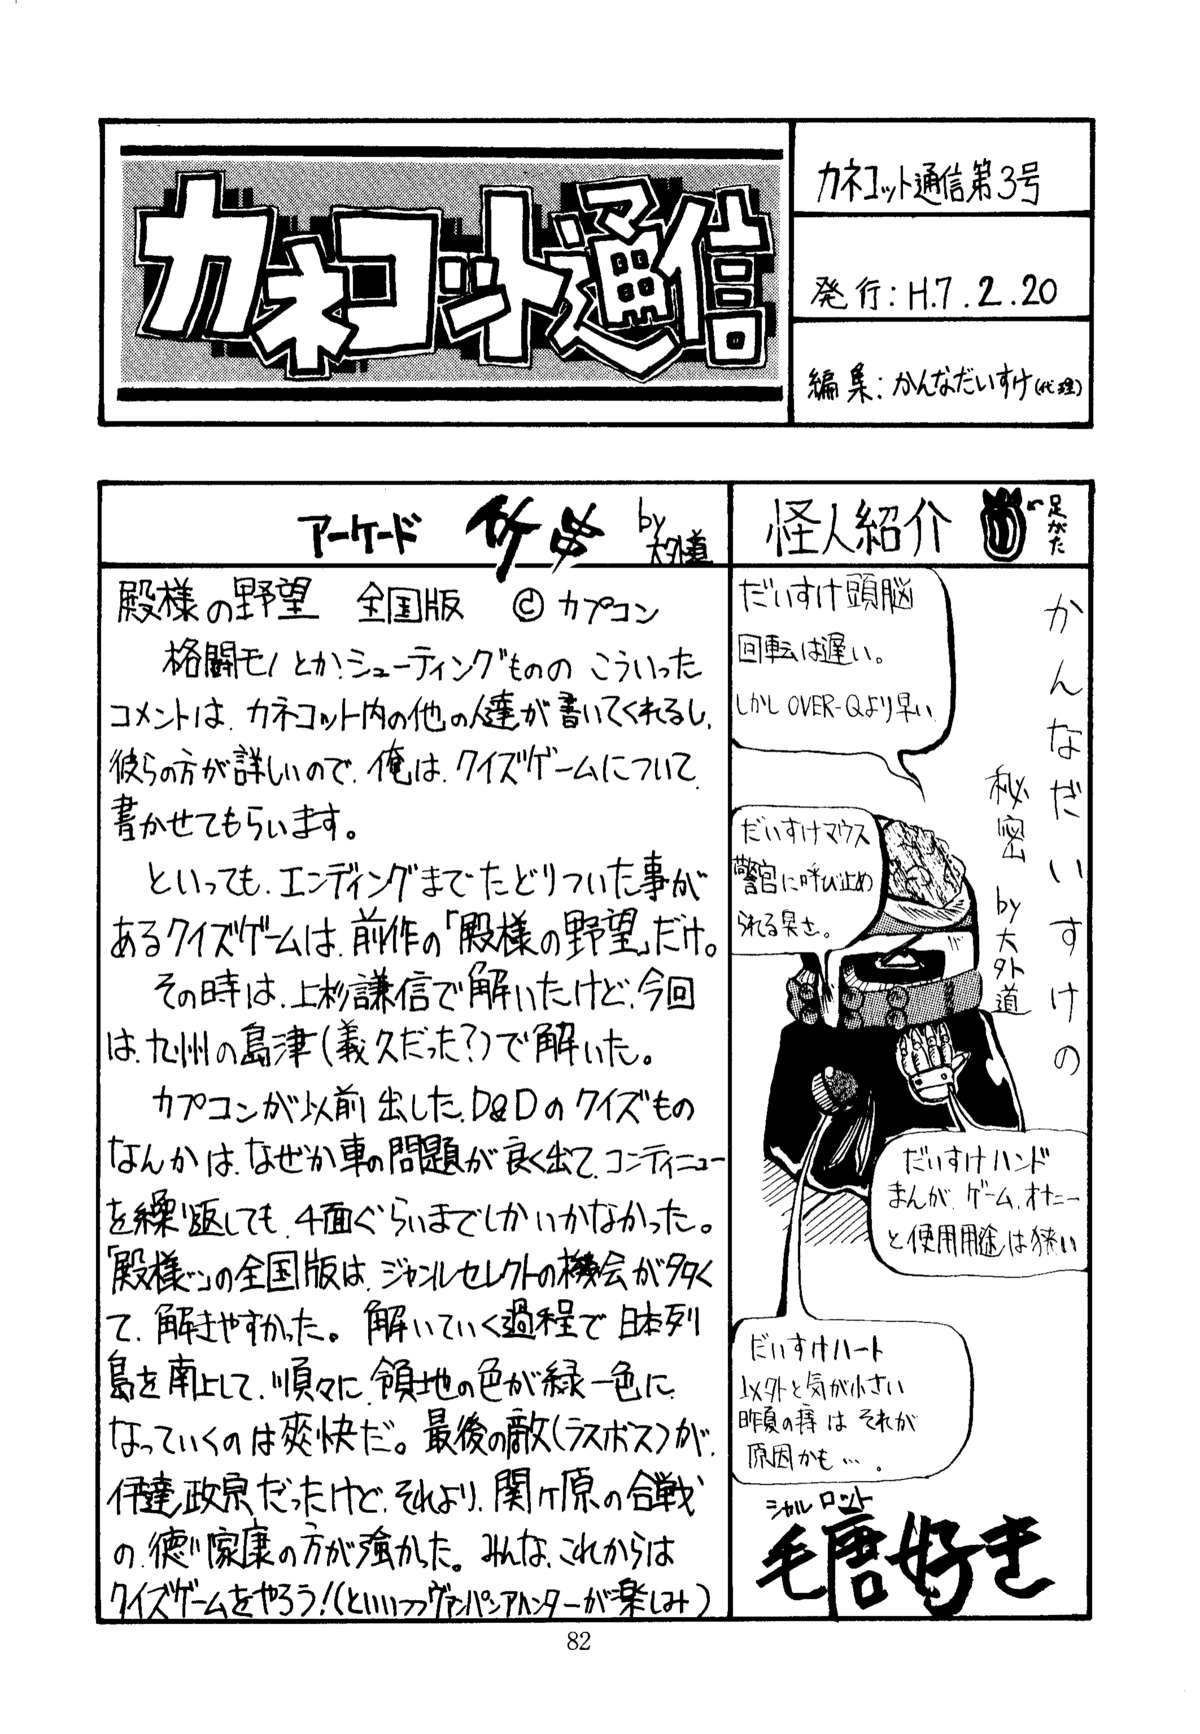 カネコット通信
カネコット通信第3号
発行:H.7.2.20
編集:かんなだいすけ(代理)
アーケード 竹串 by大外道
殿様の野望 全国版 ©カプコン
格闘モノとか、シューティングものの こういった
コメントは、カネコット内の他の人達が書いてくれるし、
彼らの方が詳しいので、俺は、クイズゲームについて
書かせてもらいます。
といっても、エンディングまでたどりついた事が
あるクイズゲームは、前作の「殿様の野望」だけ。
その時は、上杉謙信で解いたけど、今回
は、九州の島津(義久だった?)で解いた。
カプコンが以前出した、D&Dのクイズもの
なんかは、なぜか車の問題が良く出て、コンティニュー
を繰り返しても、4面ぐらいまでしかいかなかった。
「殿様…」の全国版は、ジャンルセレクトの機会が多く
て、解きやすかった。解いていく過程で日本列
島を南上して、順々に、領地の色が緑一色に
なっていくのは爽快だ。最後の敵(ラスボス)が、
伊達政宗だったけど、それより、関ヶ原の合戦
の、徳川家康の方が強かった。みんな、これからは
クイズゲームをやろう!(といいつつヴァンパイアハンターが楽しみ)
怪人紹介
足がた
かんなだいすけの
秘密 by大外道
だいすけ頭脳
回転は遅い。
しかしOVER-Qより早い
だいすけマウス
警官に呼び止め
られる臭さ。
だいすけハンド
まんが、ゲーム、オナニー
と使用用途は狭い
だいすけハート
以外と気が小さい
昨夏の痔はそれが
原因かも…。
シャルロット
毛唐好き
82